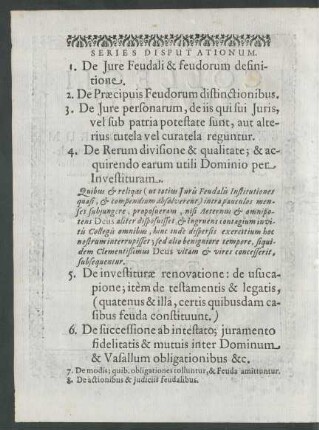 SERIES DISPUTATIONUM.
1. De Jure Feudali & feudorum defini-
tione.
2. De Præcipuis Feudorum distinctionibus.
3. De Jure personarum, de iis qui sui Juris,
vel sub patria potestate sunt, aut alte-
rius tutela vel curatela reguntur.
4. De Rerum divisione & qualitate; & ac-
quirendo earum utili Dominio per
Investituram.
Quibus & reliquæ (ut totius Juris Feudalis Institutiones
quasi, & compendium absolverent) intra pauculos men-
ses subjungere, proposueram, nisi Aeternus & omnipo-
tens Deus aliter disposuisset, & Ingruens contagium invi-
tis Collegis omnibus, hinc inde dispersis exercitium hoc
nostrum interrupisset; sed alio benigniore tempore, siqui-
dem Clementissimus Deus vitam & vires concesserit,
subsequentur.
5. De investituræ renovatione: de usuca-
pione; itēm de testamentis & legatis,
(quatenus & illa, certis quibusdam ca-
sibus feuda constituunt.)
6. De successione ab intestato; juramento
fidelitatis & mutuis inter Dominum
& Vasallum obligationibus &c.
7. De modis; quib. obligationes tolluntur, & Feuda amittuntur.
8. De actionibus & Judiciis feudalibus.